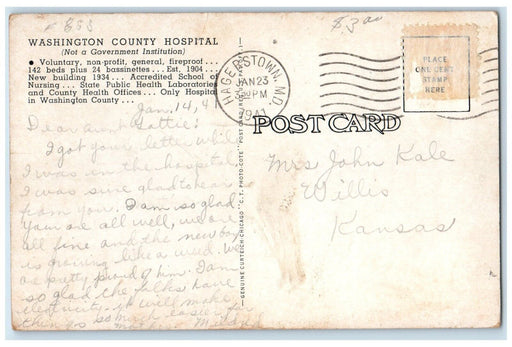 $3.00
WASHINGTON COUNTY HOSPITAL
(Not a Government Institution)
● Voluntary, non-profit, general, fireproof...
142 beds plus 24 bassinettes... Est. 1904...
New building 1934... Accredited School of
Nursing... State Public Health Laboratories
and County Health Offices... Only Hospital
in Washington County...
HAGERSTOWN, MD.
JAN 23
PM
1941
PLACE
ONE CENT
STAMP
HERE
POST CARD
GENUINE CURTEICH-CHICAGO "C.T. PHOTO-COTE" POST CARD
Jan. 14, 41
Dear Aunt Lottie:
I got your letter while
I was in the hospital
I was sure glad to hear
from you. I am so glad
you are all well, we are
all fine and the new boy
is growing like a weed. We
are pretty proud of him. I am
so glad the folks have
electricity. It will make
things so much easier for
Mildred
Mrs John Kale
Willis
Kansas